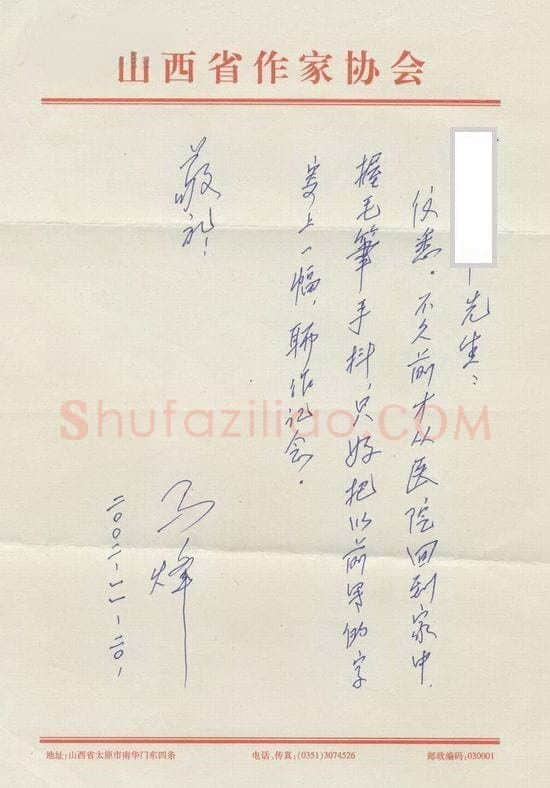 山西省作家协会
先生：
仪悉。不久前才从医院回到家中，
握毛筆手抖，只好把以前写的字
寄上一幅，聊作记念。
敬礼！
马烽
二〇〇二·一一·二〇，
Shufaziliao.COM
地址：山西省太原市南华门东四条
电话、传真：（0351）3074526
邮政编码：030001